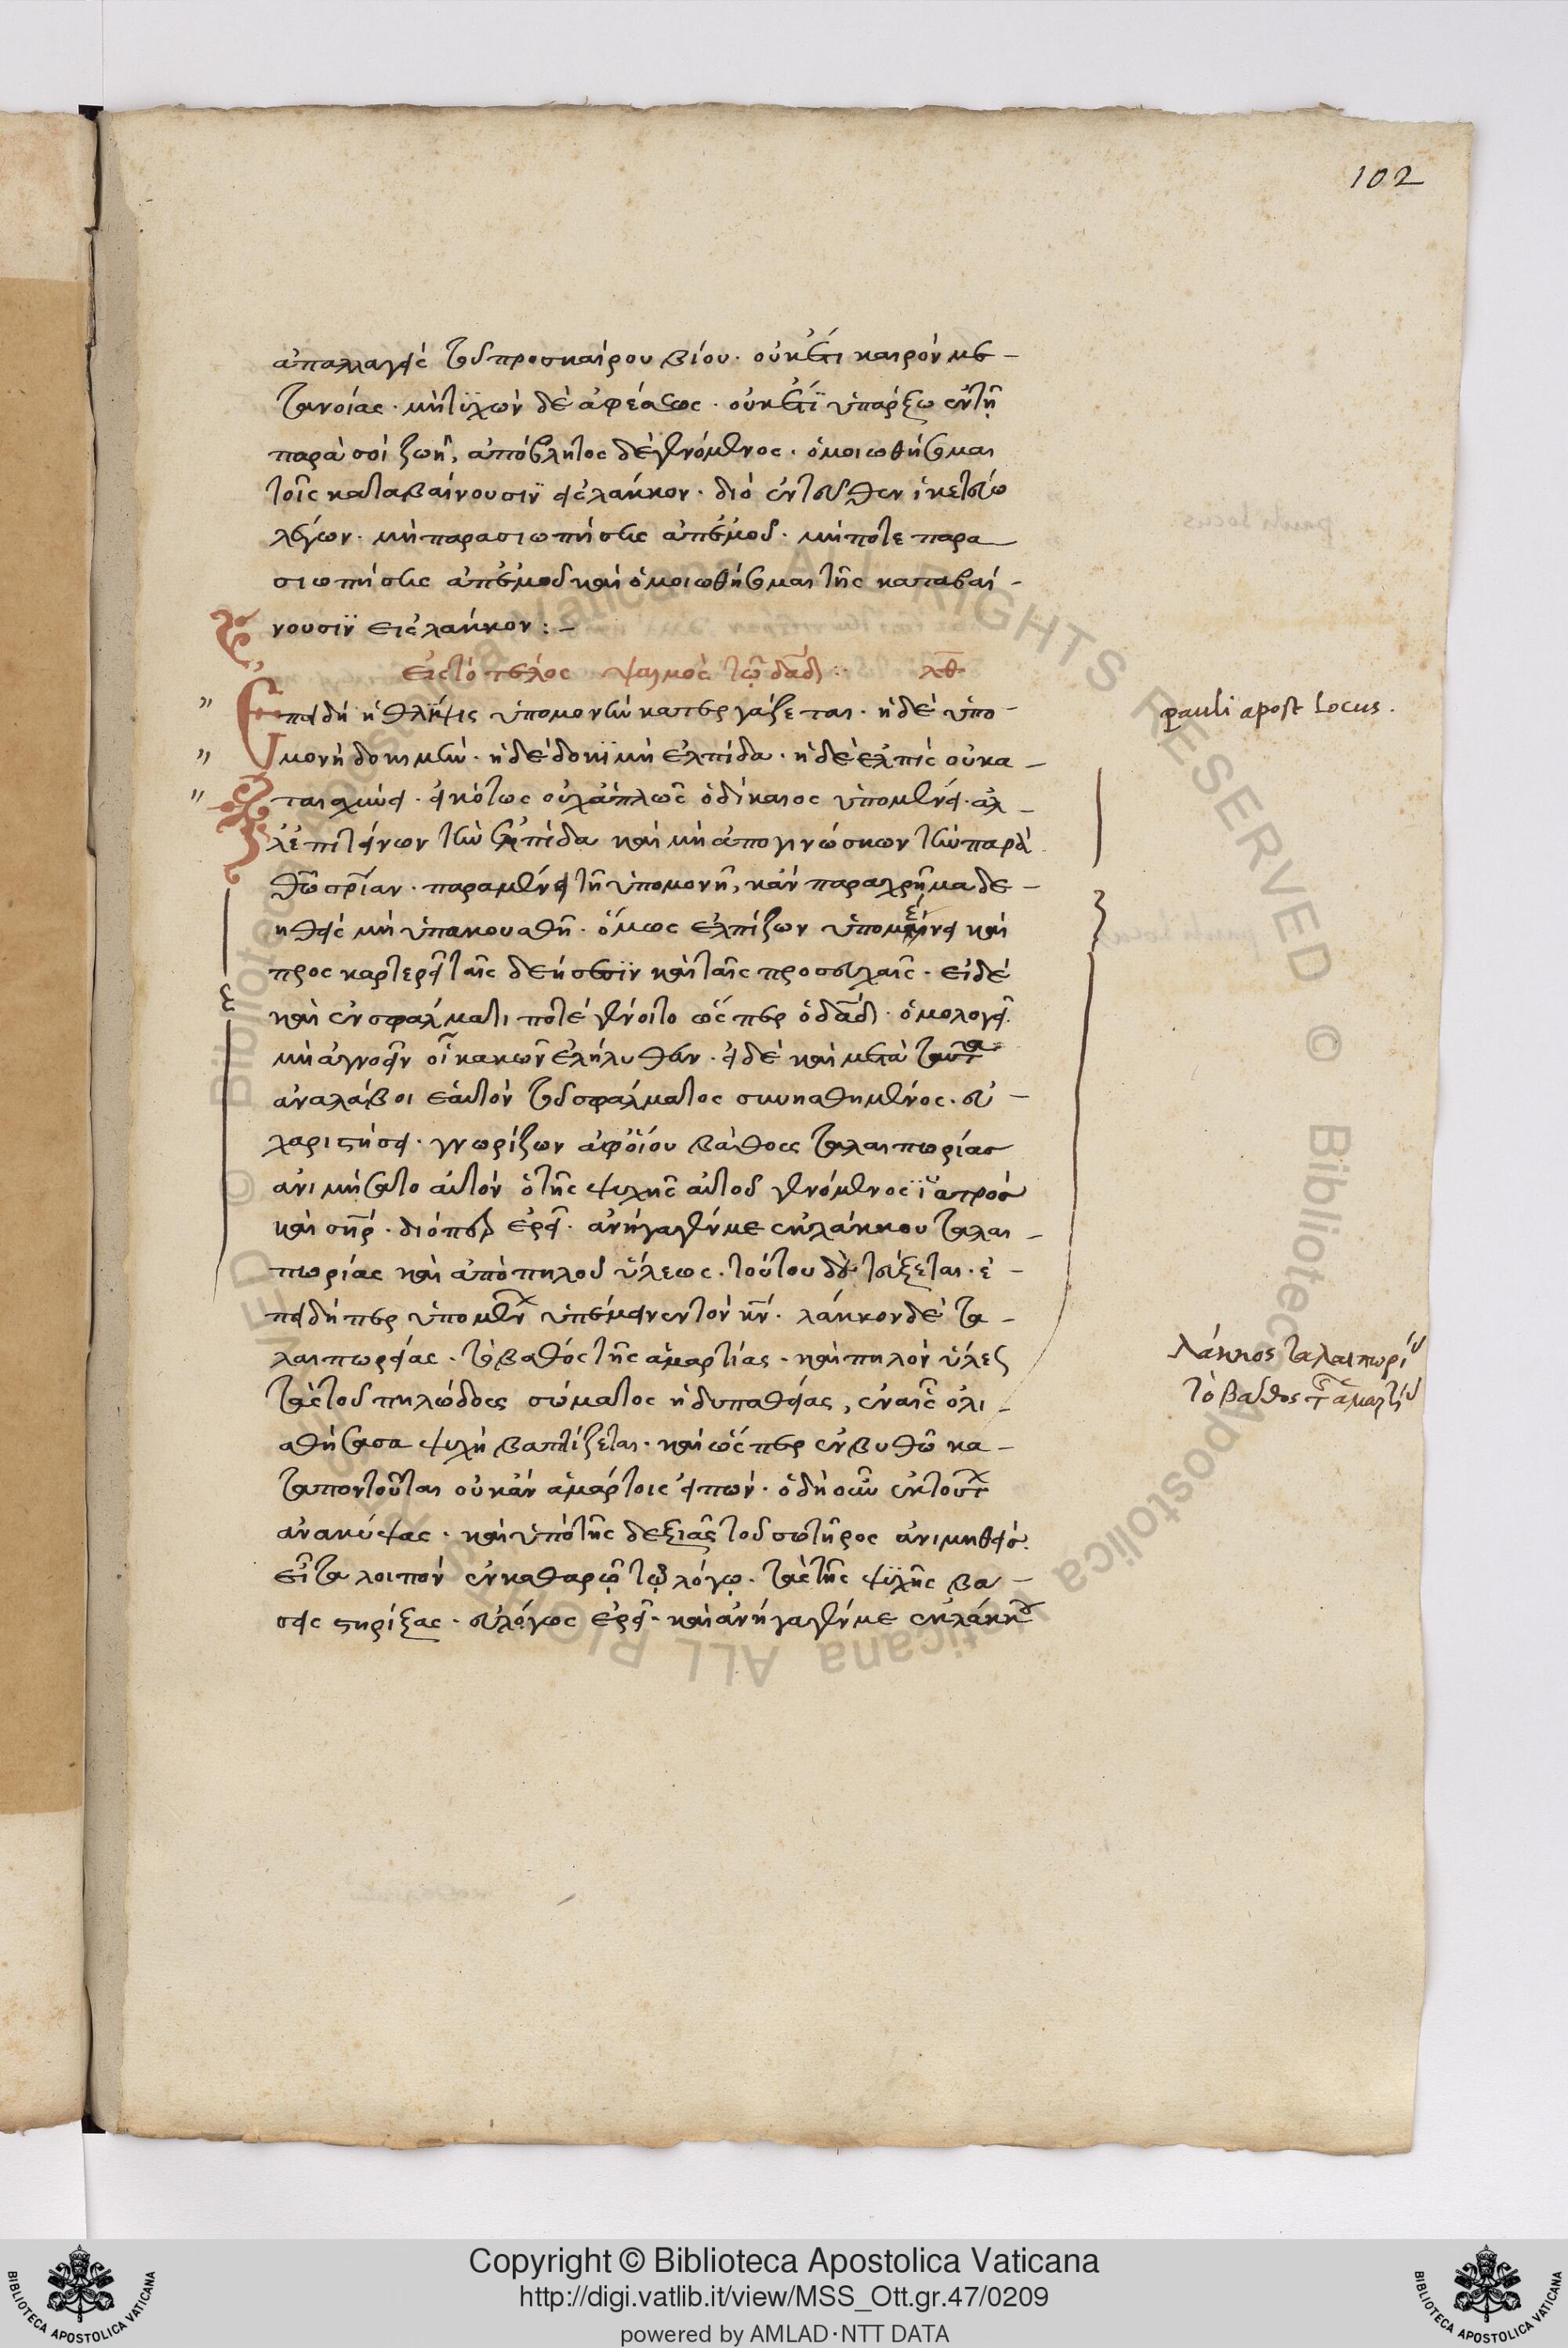 102
ἀπαλλαγεὶς τοῦ προσκαίρου βίου· οὐκέτι καιρὸν με-
τανοίας· μὴ τυχὼν δὲ ἀφέσεως· οὐκέτϊ ὑπάρξω ἐν τῇ
παρὰ σοὶ ζωῇ, ἀπόβλητος δὲ γενόμενος· ὁμοιωθήσομαι
τοῖς καταβαίνουσιν εἰς λάκκον· διὸ ἐντεῦθεν ἱκετεύω
λέγων· μὴ παρασιωπήσεις ἀπ' ἐμοῦ· μήποτε παρα
σιωπήσεις ἀπ' ἐμοῦ καὶ ὁμοιωθήσομαι τοῖς καταβαί-
νουσιν εἰς λάκκον:-
εἰς τὸ τέλος ψαλμὸς τῷ δᾱδ: λθ
" Ἐπειδὴ ἡ θλῖψις ὑπομονὴν κατεργάζεται· ἡ δὲ ὑπο-
" μονὴ δοκιμὴν· ἡ δὲ δοκιμὴ ἐλπίδα· ἡ δὲ ἐλπὶς οὐ κα-
" ταισχύνει· εἰκότως οὐχ ἁπλῶς ὁ δίκαιος ὑπομένει· ἀλ-
λ' ἐπιτείνων τὴν ἐλπίδα καὶ μὴ ἀπογινώσκων τὴν παρὰ
θῡ σρίαν· παραμένει τῇ ὑπομονῇ, κἂν παραχρῆμα δε-
ηθεὶς μὴ ὑπακουσθῇ· ὅμως ἐλπίζων ὑπομένει καὶ
προσκαρτερεῖ ταῖς δεήσεσϊν καὶ ταῖς προσευχαῖς· εἰ δὲ
καὶ ἐν σφάλματι ποτὲ γένοιτο ὥσπερ ὁ δᾱδ· ὁμολογεῖ
μὴ ἀγνοεῖν οἷ κακῶν ἐλήλυθεν· εἰ δὲ καὶ μετὰ ταῦτα
ἀναλάβοι ἑαυτὸν τοῦ σφάλματος συνῃσθημένος· εὐ-
χαριστήσει· γνωρίζων ἀφ' οἵου βάθους ταλαιπωρίας
ἀνιμήσατο αὐτὸν ὁ τῆς ψυχῆς αὐτοῦ γενόμενος ἰατρὸς
καὶ σηρ· διόπερ ἐρεῖ· ἀνήγαγέν με ἐκ λάκκου ταλαι-
πωρίας καὶ ἀπὸ πηλοῦ ὕλεως· τούτου δὲ τεύξεται· ἐ-
πειδήπερ ὑπομένων ὑπέμεινεν τὸν κν· λάκκον δὲ τα-
λαιπωρίας· τὸ βάθος τῆς ἁμαρτίας· καὶ πηλὸν ὕλεως
τὰς τοῦ πηλώδους σώματος ἡδυπαθείας, ἐν αἷς ὀλι-
σθήσασα ψυχὴ βαπτίζεται· καὶ ὥσπερ ἐν βυθῷ κα-
ταποντοῦται οὐκ ἂν ἁμάρτοις εἰπών· ὁ δὴ οὖν ἐκ τούτων
ἀνακύψας· καὶ ὑπὸ τῆς δεξιᾶς τοῦ σωτῆρος ἀνιμηθείς·
εἶτα λοιπὸν ἐν καθαρῷ τῷ λόγῳ· τὰς τῆς ψυχῆς βά-
σεις στηρίξας· εὐλόγως ἐρεῖ· καὶ ἀνήγαγέν με ἐκ λάκκου
pauli apost locus.
λάκκος ταλαιπωρί
τὸ βάθος τ ἁμαρτί
Copyright © Biblioteca Apostolica Vaticana
http://digi.vatlib.it/view/MSS_Ott.gr.47/0209
powered by AMLAD·NTT DATA